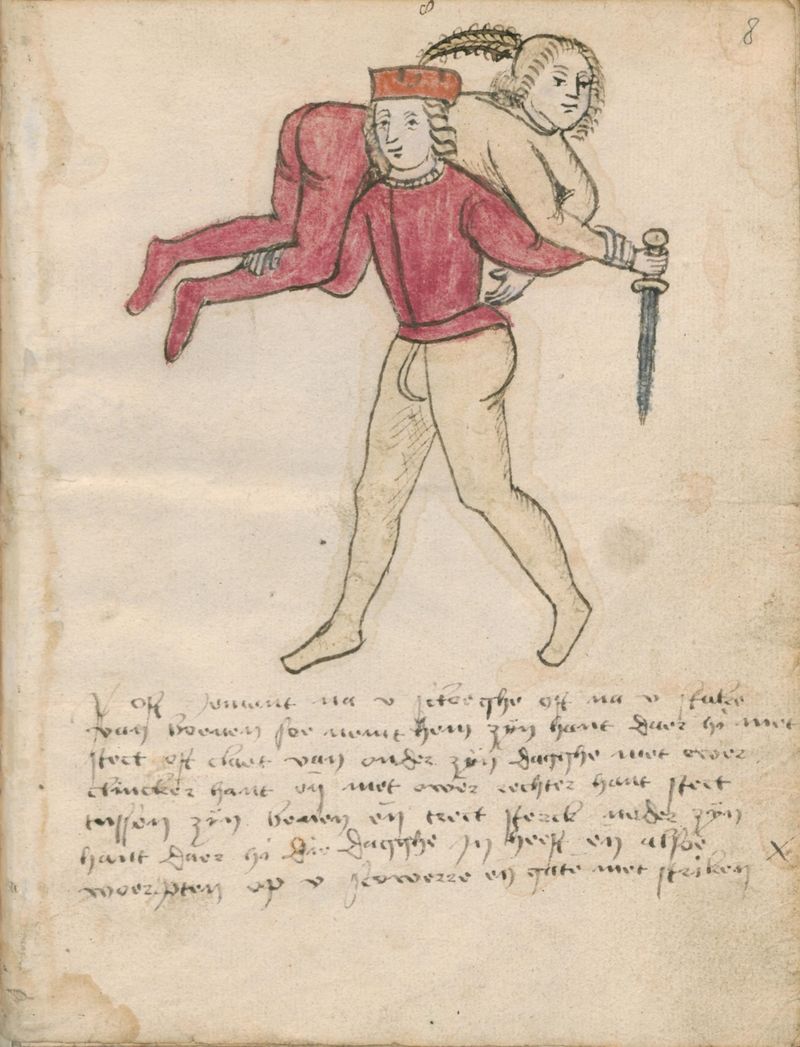 8
8
of yemant na v steeghe of na v stake
van boeuen soe nemt hem zijn hant daer hi met
stect of slaet van onder zijn dagghe met ower
slincker hant en̄ met ower rechter hant stect
tussen zijn benen en̄ trect sterck neder zijn
hant daer hi die dagghe in heeft en̄ alsoe
woerpten op v scowerre en̄ gaet met striken
x